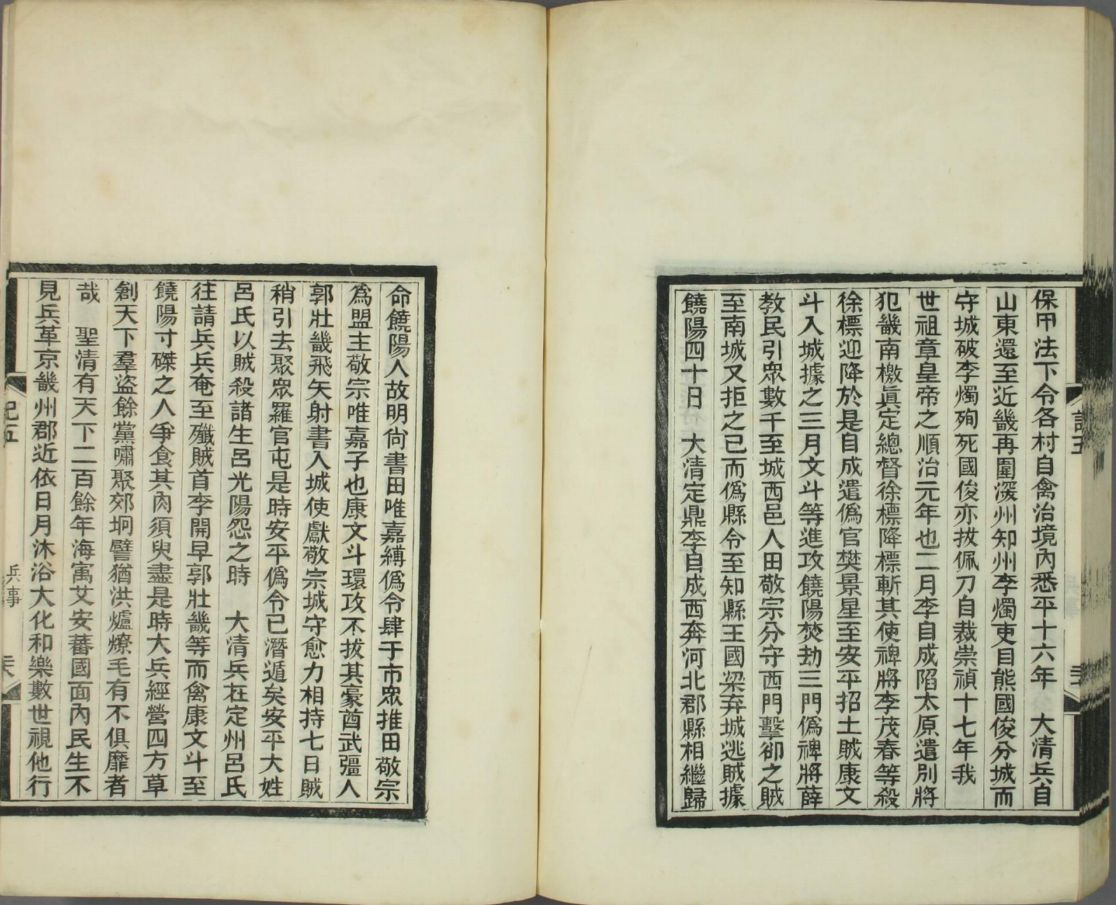 保甲法下令各村自禽治境內悉平十六年　大清兵自
山東還至近畿再圍深州知州李燭吏目熊國俊分城而
守城破李燭殉死國俊亦拔佩刀自裁崇禎十七年我
世祖章皇帝之順治元年也二月李自成陷太原遣別將
犯畿南檄眞定總督徐標降標斬其使裨將李茂春等殺
徐標迎降於是自成遣僞官樊景星至安平招土賊康文
斗入城據之三月文斗等進攻饒陽焚劫三門僞裨將薛
教民引衆數千至城西邑人田敬宗分守西門擊卻之賊
至南城又拒之已而僞縣令至知縣王國梁弃城逃賊據
饒陽四十日　大清定鼎李自成西奔河北郡縣相繼歸
命饒陽人故明尙書田唯嘉縛僞令肆于市衆推田敬宗
爲盟主敬宗唯嘉子也康文斗環攻不拔其豪酋武彊人
郭壯畿飛矢射書入城使獻敬宗城守愈力相持七日賊
稍引去聚衆羅官屯是時安平僞令已潛遁矣安平大姓
呂氏以賊殺諸生呂光陽怨之時　大清兵在定州呂氏
往請兵兵奄至殲賊首李開早郭壯畿等而禽康文斗至
饒陽寸磔之人爭食其肉須臾盡是時大兵經營四方草
創天下羣盜餘黨嘯聚郊坰譬猶洪爐燎毛有不俱靡者
哉　聖清有天下二百餘年海㝢艾安蕃國面內民生不
見兵革京畿州郡近依日月沐浴大化和樂數世視他行
記五
兵事